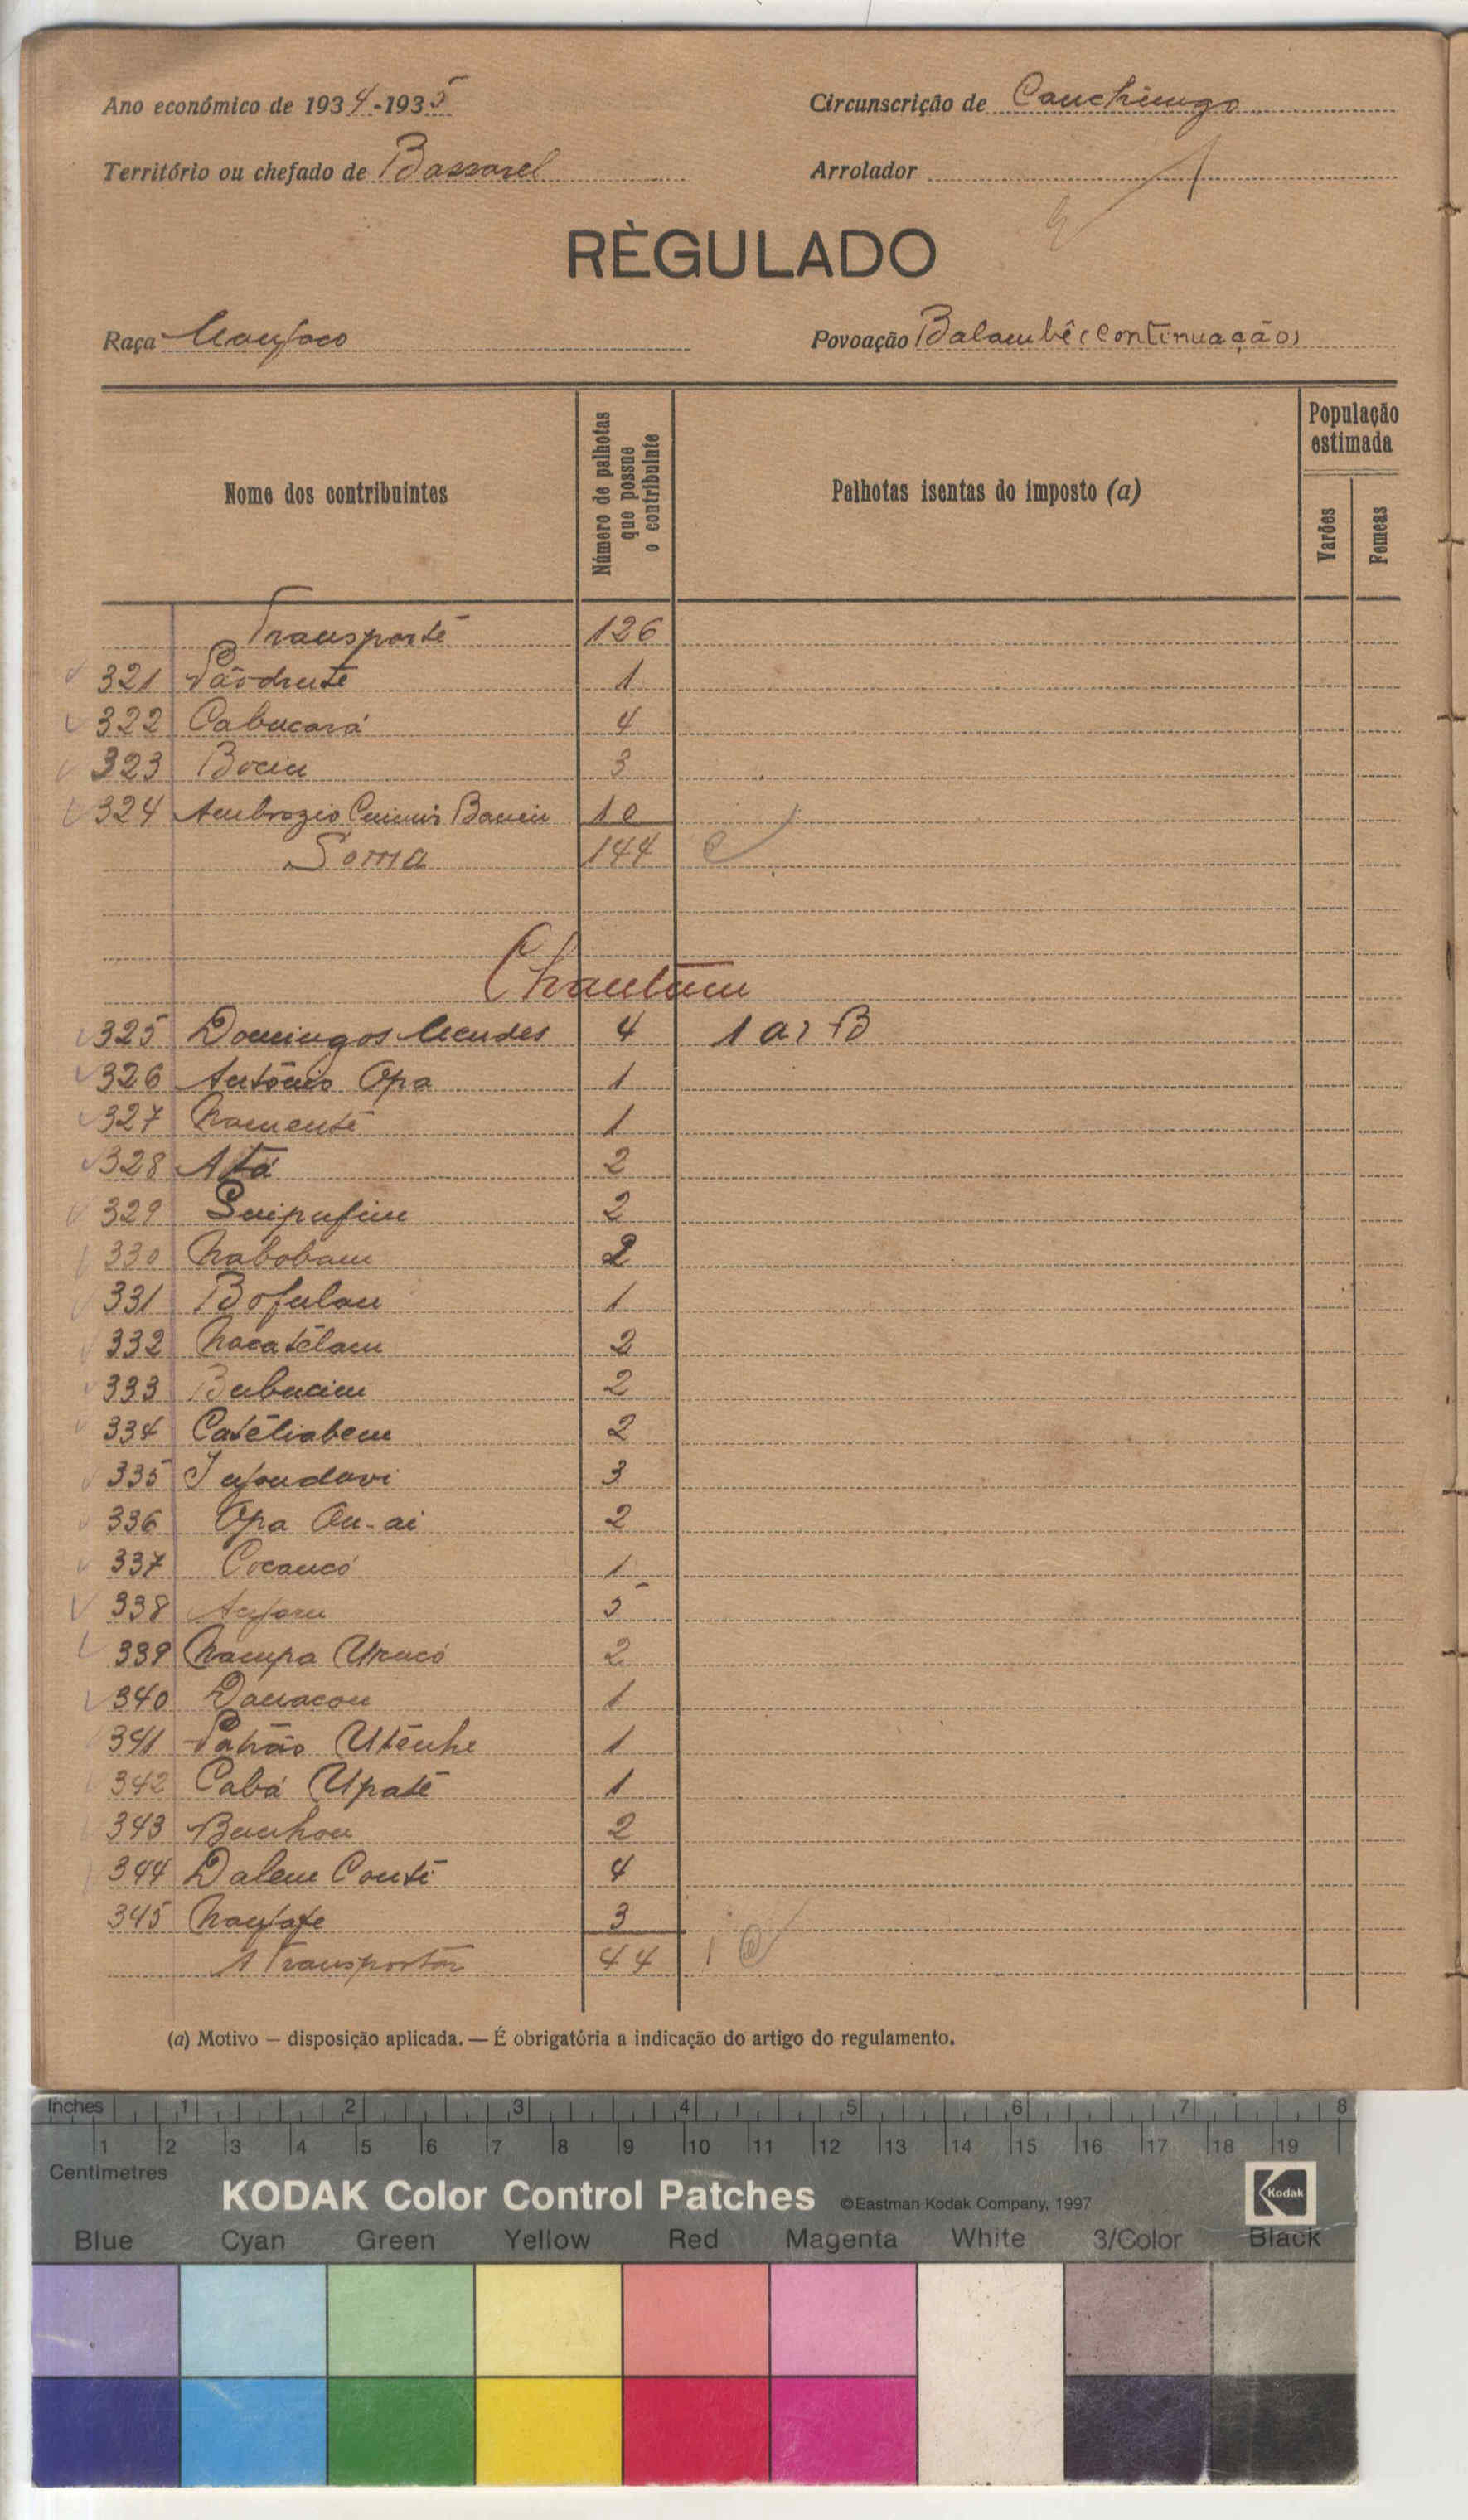 Ano económico de 1934-1935
Circunscrição de Canchungo
Território ou chefado de Bassarel
Arrolador
RÈGULADO
Raça Manjaco
Povoação Balambê (continuação)
Nome dos contribuintes
Número de palhotas que possue o contribuinte
Palhotas isentas do imposto (a)
População estimada
Varões
Femeas
Transporte 126
321 1
322 Cabucará 4
323 Bocin 3
324 Ambrozio 10
Soma 144
325 Domingos Mendes 4 1
326 António Opa 1
327 Namenté 1
328 Atá 2
329 2
330 Nabobam 2
331 Bofulan 1
332 Nacatélam 2
333 2
334 Catéliabem 2
335 3
336 Opa 2
337 Cocancó 1
338 5
339 Nacupa 2
340 Danacon 1
341 1
342 Cabá Upaté 1
343 Bunhon 2
344 Dalem Conté 4
345 Nanjafe 3
A Transportar 44
(a) Motivo — disposição aplicada. — É obrigatória a indicação do artigo do regulamento.
Inches 1 2 3 4 5 6 7 8
1 2 3 4 5 6 7 8 9 10 11 12 13 14 15 16 17 18 19
Centimetres
KODAK Color Control Patches ©Eastman Kodak Company, 1997 Kodak
Blue Cyan Green Yellow Red Magenta White 3/Color Black